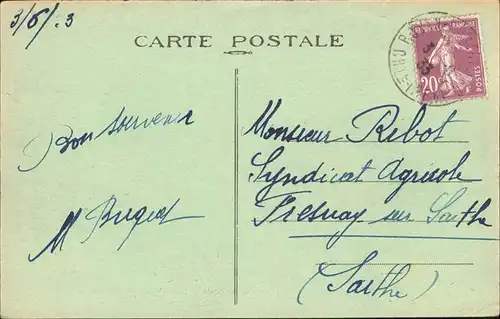 3/6/.3
CARTE POSTALE
FRANÇAISE
20c
POSTES
Bon souvenir
M Buget
Monsieur Ribot
Syndicat Agricole
Fresnay sur Sarthe
(Sarthe)